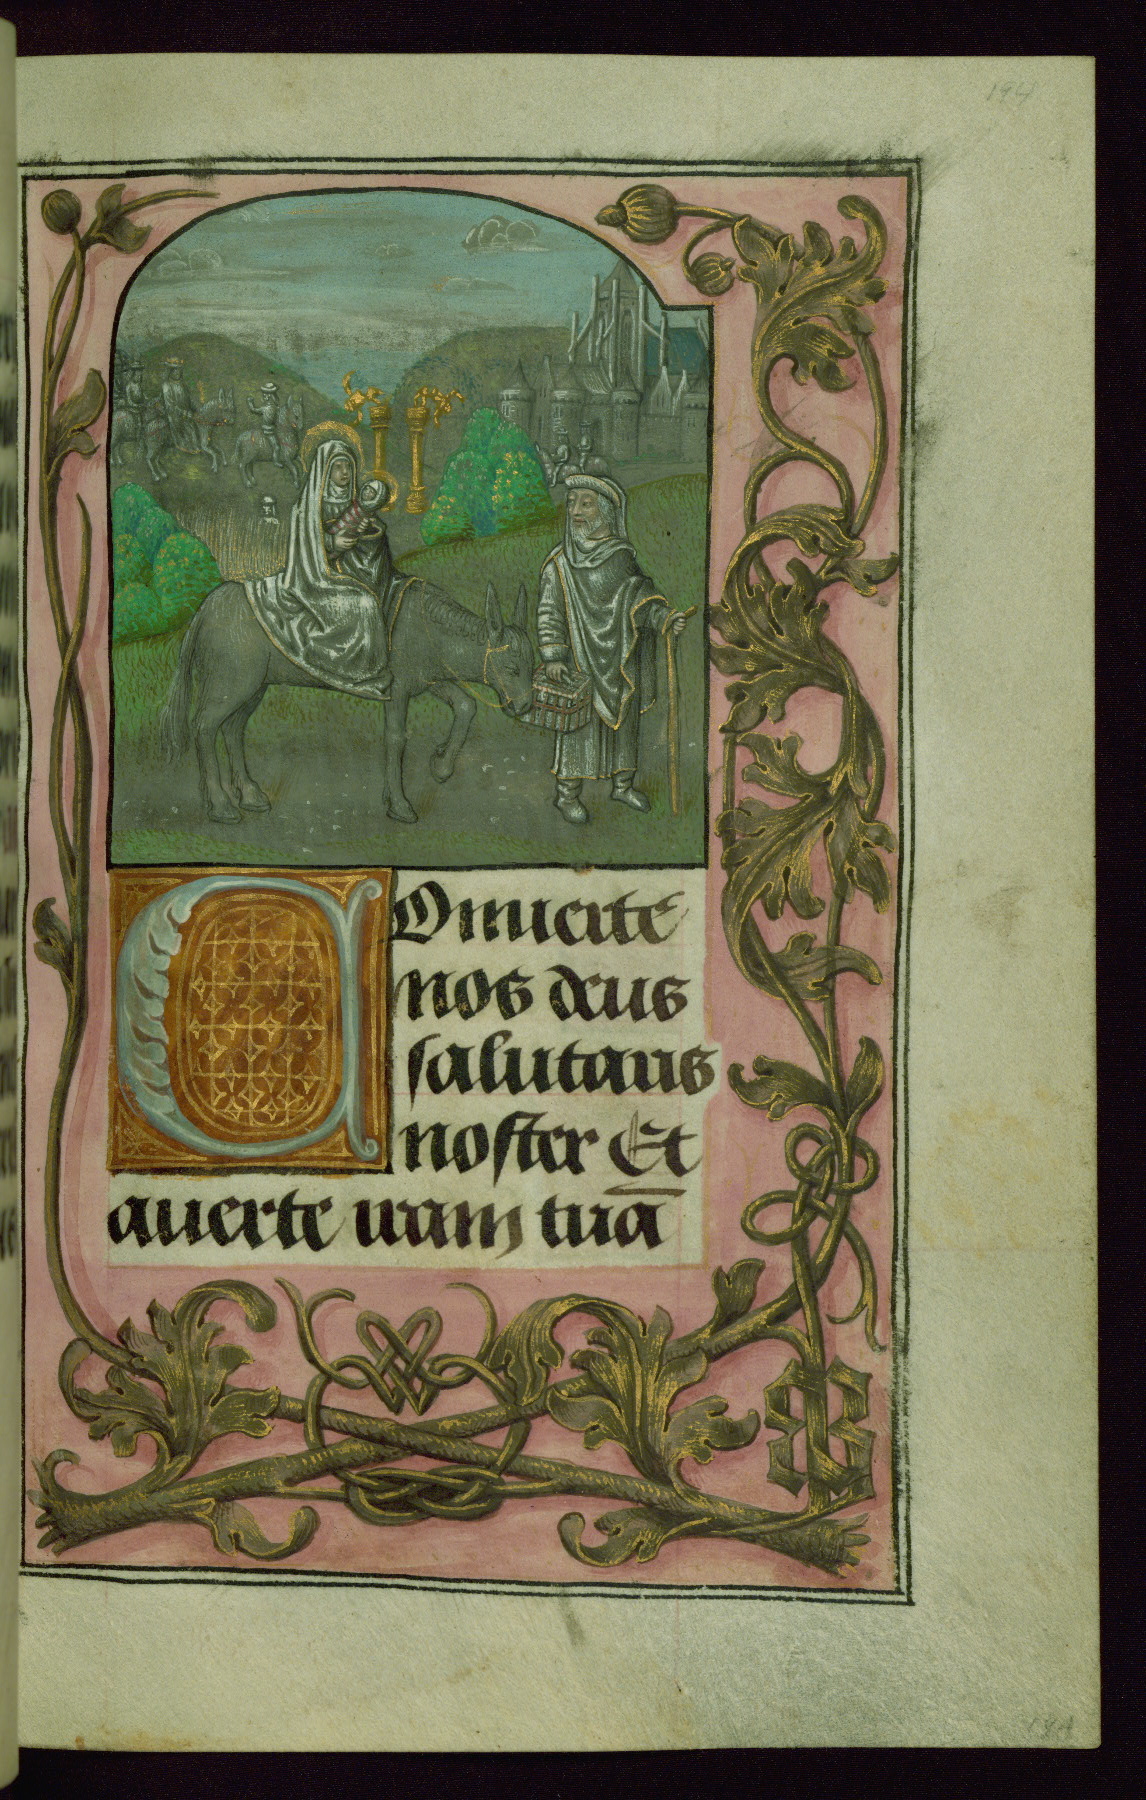 194
Onuerte
nos deus
salutaris
noster Et
auerte iram tuā
184